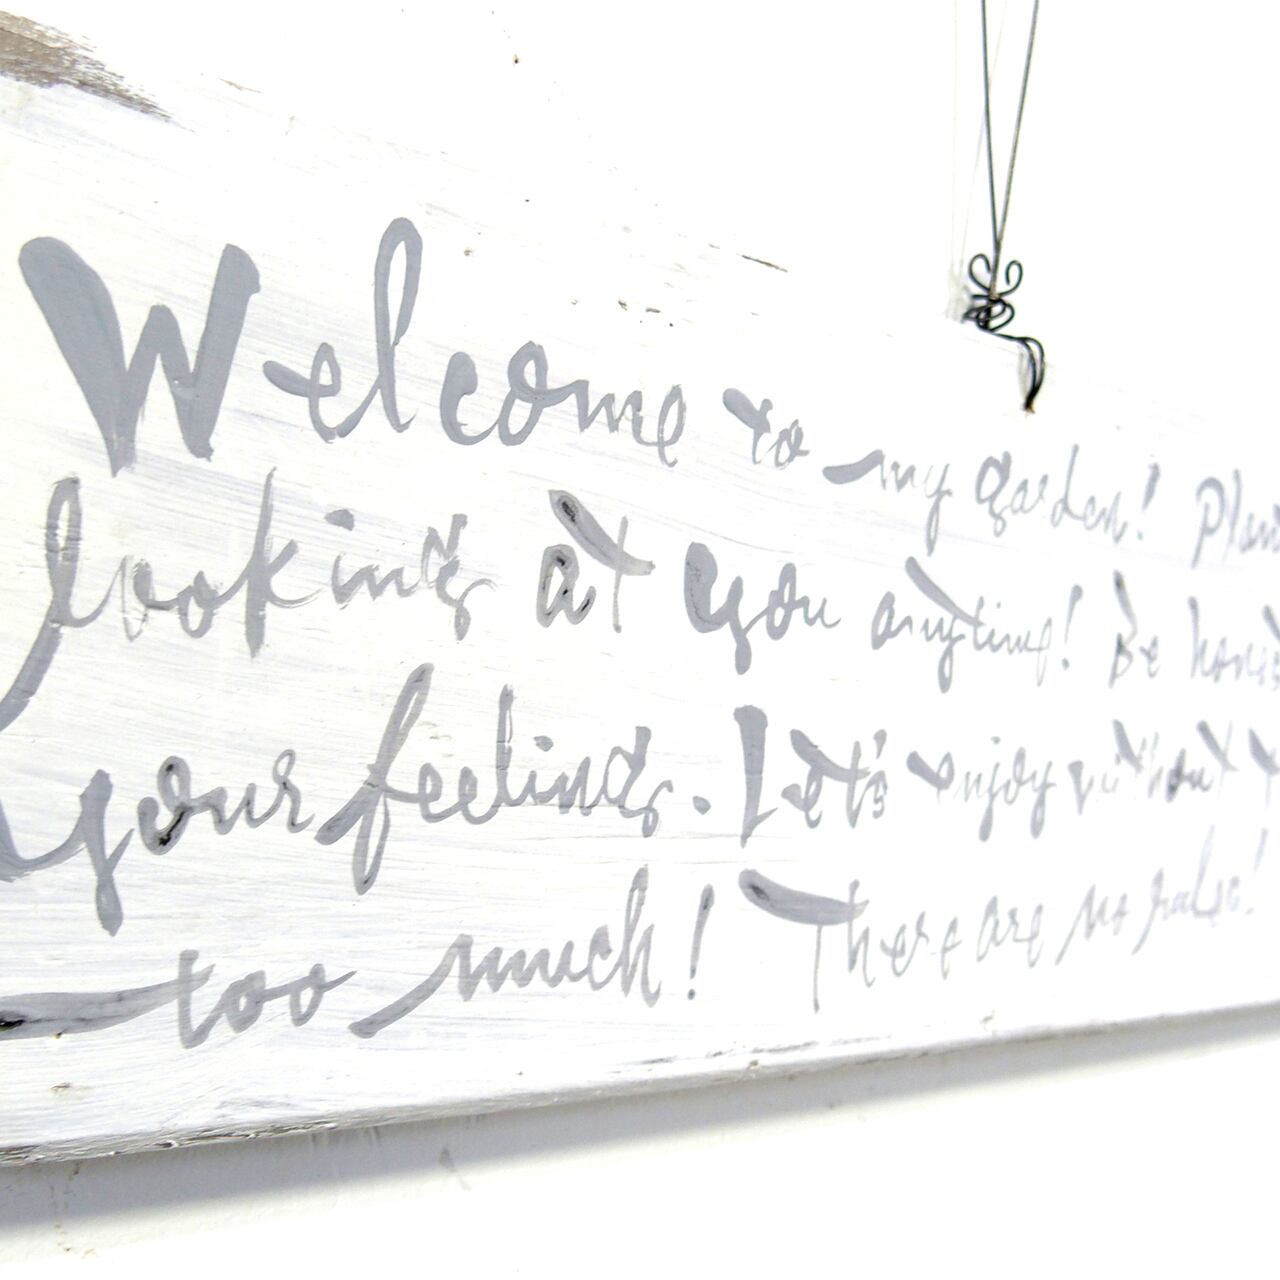 Welcome to my garden!
looking at you anytime! Be honest
your feelings. Let's enjoy without
too much! There are no rules!